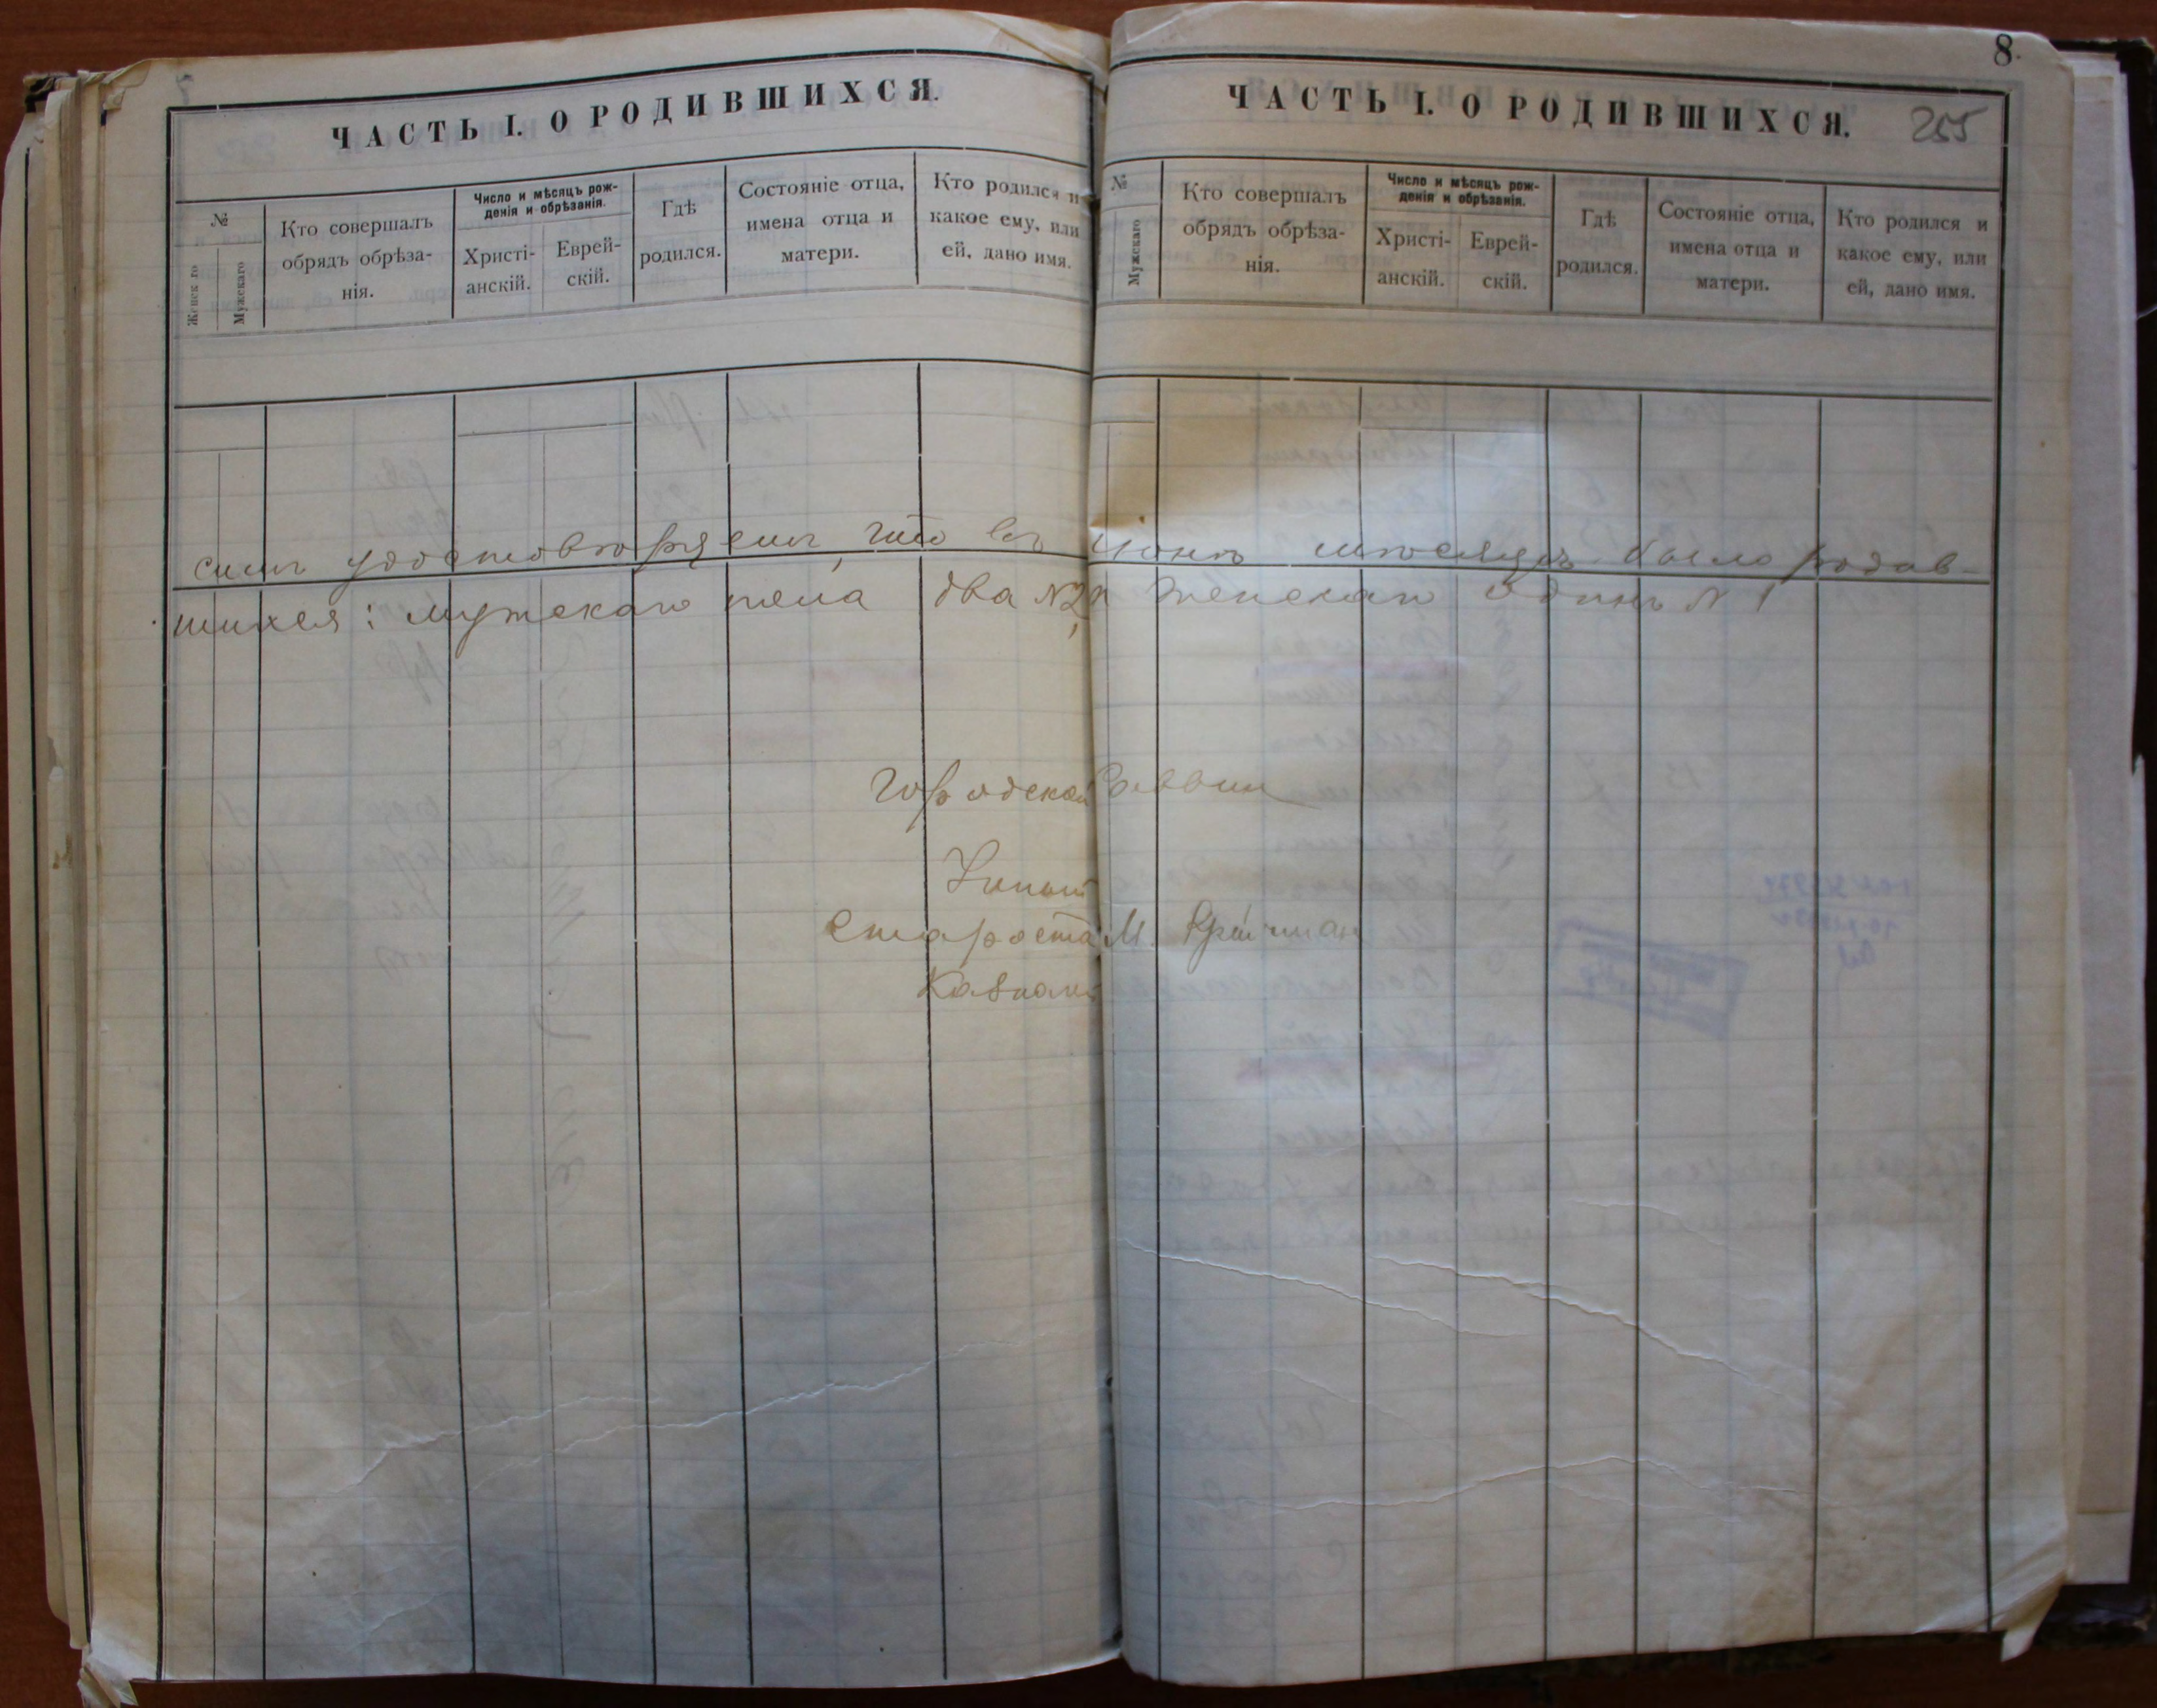 8.
ЧАСТЬ I. О РОДИВШИХСЯ.
№
Женскаго
Мужскаго
Кто совершалъ
обрядъ обрѣза-
нія.
Число и мѣсяцъ рож-
денія и обрѣзанія.
Христі-
анскій.
Еврей-
скій.
Гдѣ
родился.
Состояніе отца,
имена отца и
матери.
Кто родился и
какое ему, или
ей, дано имя.
ЧАСТЬ I. О РОДИВШИХСЯ.
255
№
Мужскаго
Кто совершалъ
обрядъ обрѣза-
нія.
Число и мѣсяцъ рож-
денія и обрѣзанія.
Христі-
анскій.
Еврей-
скій.
Гдѣ
родился.
Состояніе отца,
имена отца и
матери.
Кто родился и
какое ему, или
ей, дано имя.
симъ удостовѣряемъ, что въ Іюнѣ мѣсяцѣ было родив-
шихся: мужскаго пола два №2, женскаго одинъ №1
Городской Раввинъ
Староста М.
Казначей